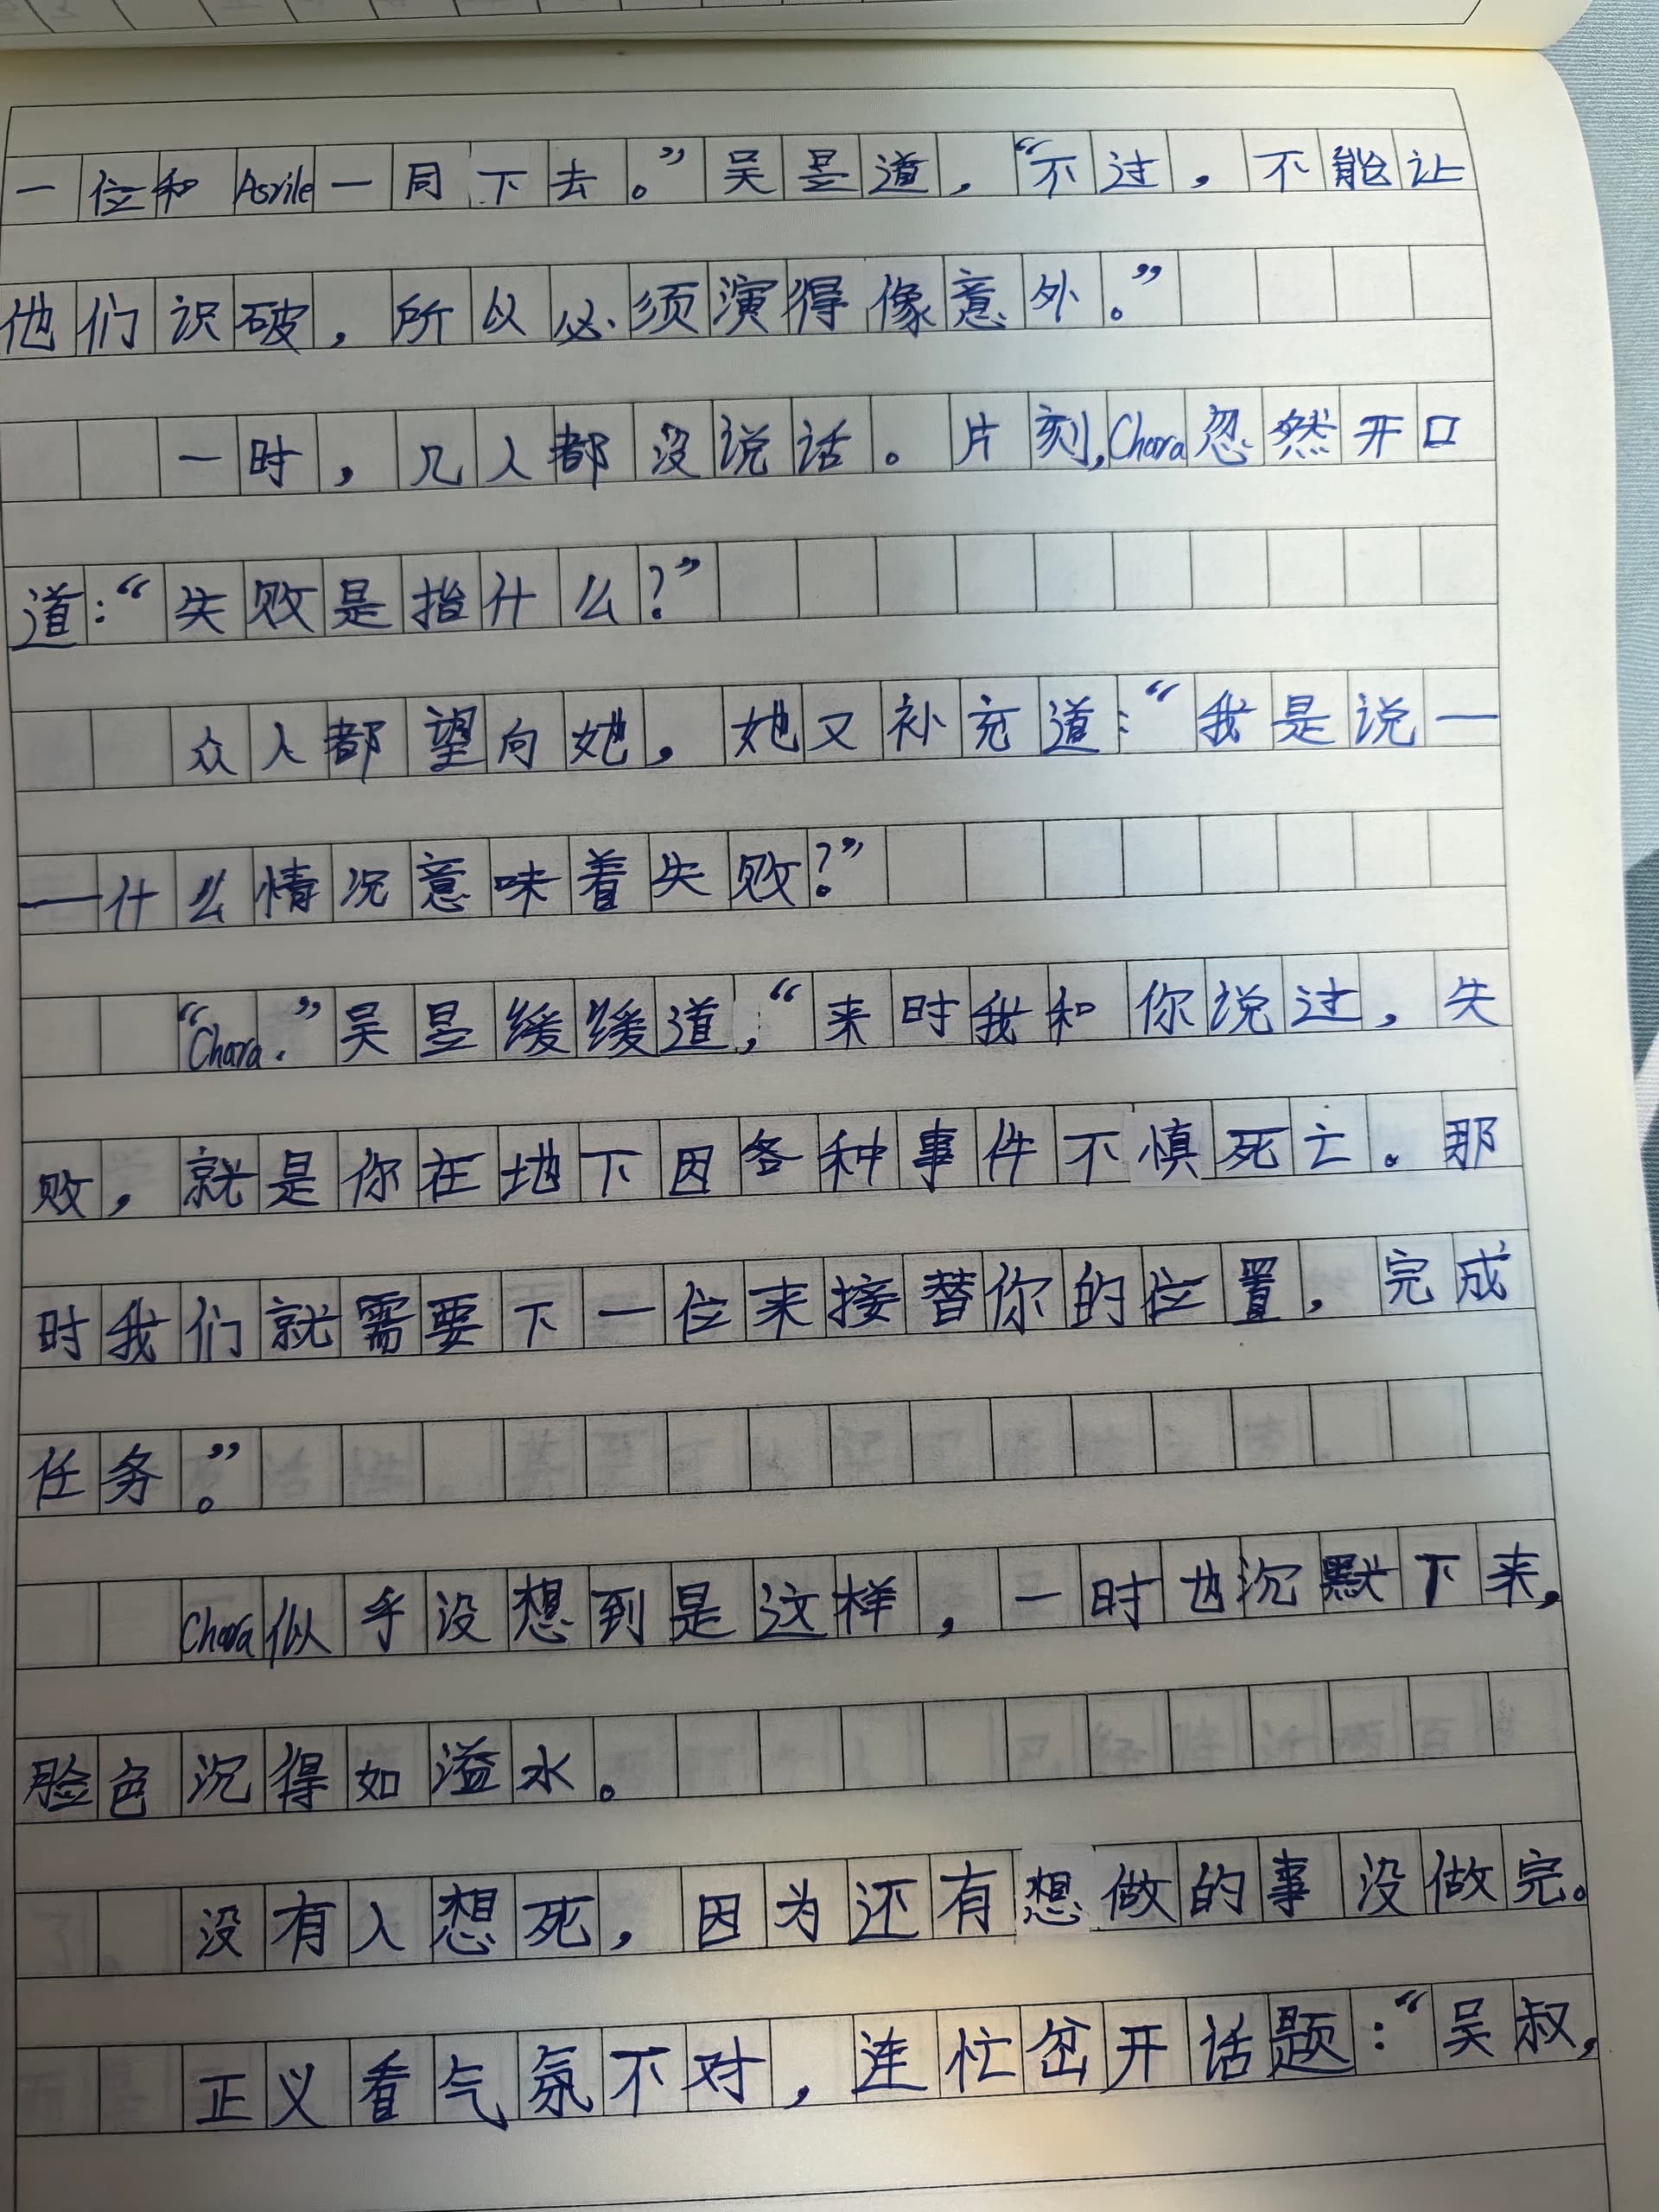 一位和Asrile一同下去。”吴昱道，“不过，不能让
他们识破，所以必须演得像意外。”
一时，几人都没说话。片刻,Chara忽然开口
道：“失败是指什么？”
众人都望向她，她又补充道：“我是说—
—什么情况意味着失败？”
“Chara.”吴昱缓缓道，“来时我和你说过，失
败，就是你在地下因各种事件不慎死亡。那
时我们就需要下一位来接替你的位置，完成
任务。”
Chara似乎没想到是这样，一时也沉默下来，
脸色沉得如溢水。
没有人想死，因为还有想做的事没做完。
正义看气氛不对，连忙岔开话题：“吴叔，